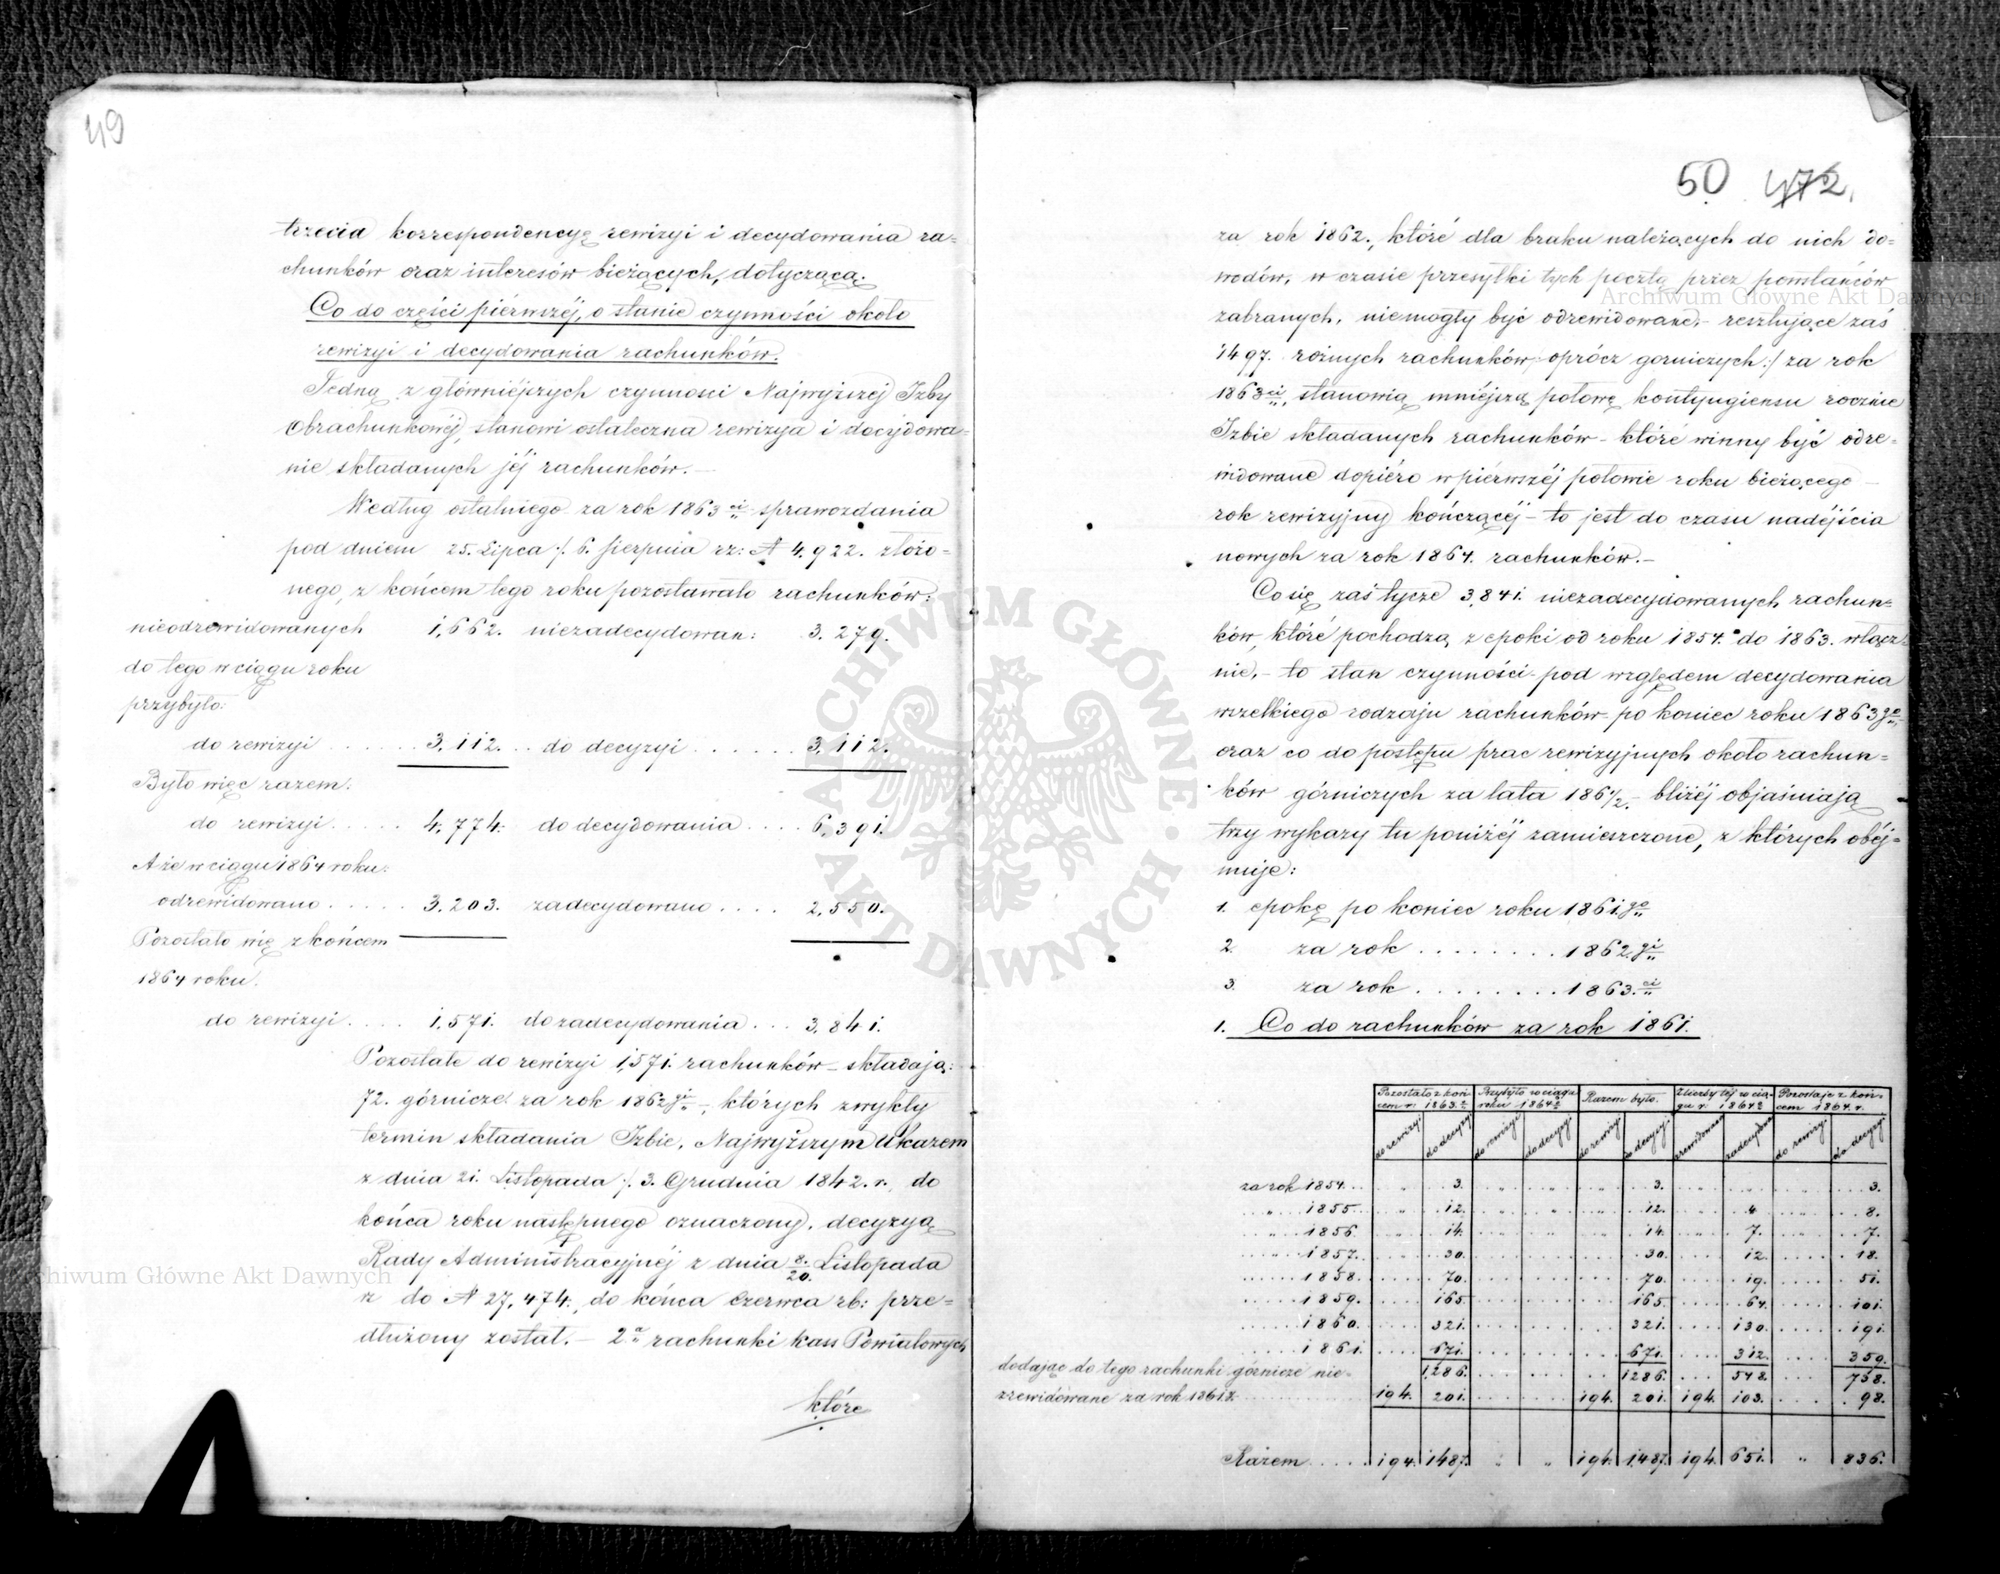 49
trzecia korrespondencyę rewizyi i decydowania ra=
chunków oraz interesów bieżących, dotyczącą.
Co do części piérwszéj, o stanie czynności około
rewizyi i decydowania rachunków.
Jedną z główniéjszych czynnosci Najwyższéj Izby
Obrachunkowéj, stanowi ostateczna rewizya i decydowa=
nie składanych jéj rachunków.—
Według ostatniego za rok 1863ci sprawozdania
pod dniem 25. Lipca /. 6. Sierpnia rz: N 4,922. złożo=
nego, z końcem tego roku pozostawało rachunków:
nieodrewidowanych 1,662. niezadecydowan: 3.279.
do tego w ciągu roku
przybyło:
do rewizyi ...... 3,112. .. do decyzyi ....... 3,112.
Było więc razem:
do rewizyi ..... 4,774. do decydowania .... 6,391.
A że w ciągu 1864 roku:
odrewidowano ..... 3.203. zadecydowano .... 2,550.
Pozostało więc z końcem
1864 roku.
do rewizyi .... 1,571. do zadecydowania ... 3,841.
Pozostałe do rewizyi 1,571. rachunków – składają:
72. górnicze za rok 1862gi –, których zwykły
termin składania Izbie, Najwyższym Ukazem
z dnia 21. Listopada /. 3. Grudnia 1842. r., do
końca roku następnego oznaczony, decyzyą
Rady Administracyjnéj z dnia 8./20. Listopada
rz do N 27,474., do końca Czerwca rb: prze=
dłużony został. – 2a rachunki kass Powiatowych
które
50 472.
za rok 1862., któré dla braku należących do nich do=
wodów, w czasie przesyłki tych pocztą przez powstańców
zabranych, niemogły być odrewidowane, – resztujące zaś
1497. roźnych rachunków, oprócz gorniczych :/ za rok
1863ci, stanowią mniéjszą połowę kontyngiensu rocznie
Izbie składanych rachunków – któré winny być odre=
widowane dopiéro w piérwszéj połowie roku bieżącego –
rok rewizyjny kończącéj – to jest do czasu nadéjścia
nowych za rok 1864. rachunków. –
Co się zaś tycze 3,841. niezadecydowanych rachun=
ków, któré pochodzą z epoki od roku 1854. do 1863. włącz=
nie, – to stan czynności pod względem decydowania
wszelkiego rodzaju rachunków po koniec roku 1863go
oraz co do postępu prac rewizyjnych około rachun=
ków górniczych za lata 1861/2. – bliżéj objaśniają
trzy wykazy tu poniżéj zamieszczone, z których obéj=
muje:
1. epokę po koniec roku 1861.go
2. za rok ........ 1862.gi
3. za rok ......... 1863.ci
1. Co do rachunków za rok 1861.
Pozostało z koń= Przybyło w ciągu Razem było. Z liczby téj w cią= Pozostaje z koń=
cem r. 1863.o roku 1864.o gu r. 1864.o cem 1864. r.
do rewizyi do decyzyi do rewizyi do decyzyi do rewizyi do decyzyi zrewidowano zadecydowano do rewizyi do decyzyi
za rok 1854. 3. 3. 3.
1855. 12. 12. 4. 8.
1856. 14. 14. 7. 7.
1857. 30. 30. 12. 18.
1858. 70. 70. 19. 51.
1859. 165. 165. 64. 101.
1860. 321. 321. 130. 191.
1861. 671. 671. 312. 359.
1286. 1286. 548. 738.
dodając do tego rachunki górnicze nie=
zrewidowane za rok 1861.r. 194. 201. 194. 201. 194. 103. 98.
Razem ..... 194. 1487. " " 194. 1,487. 194. 651. " 836.
Archiwum Główne Akt Dawnych
Archiwum Główne Akt Dawnych
ARCHIWUM GŁÓWNE • AKT DAWNYCH •